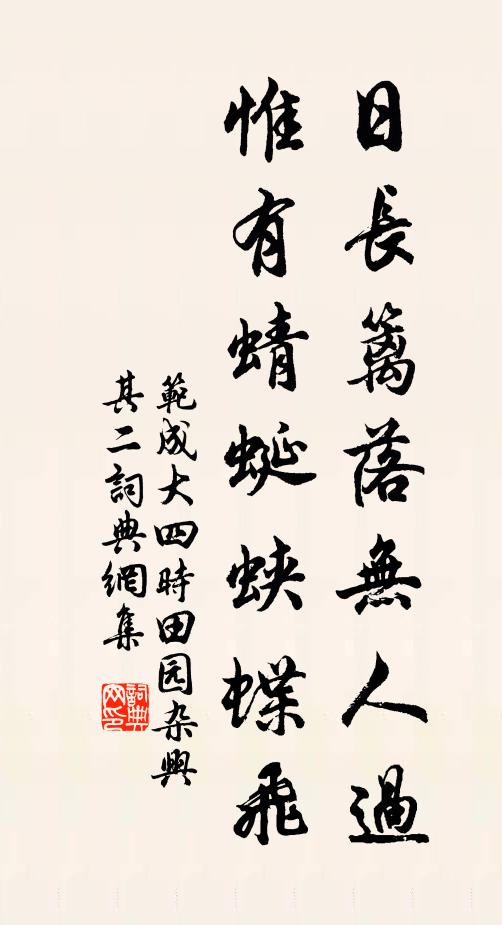 日長籬落無人過
惟有蜻蜓蛺蝶飛
範成大四時田园杂興
其二詞典網集
詞典
网印